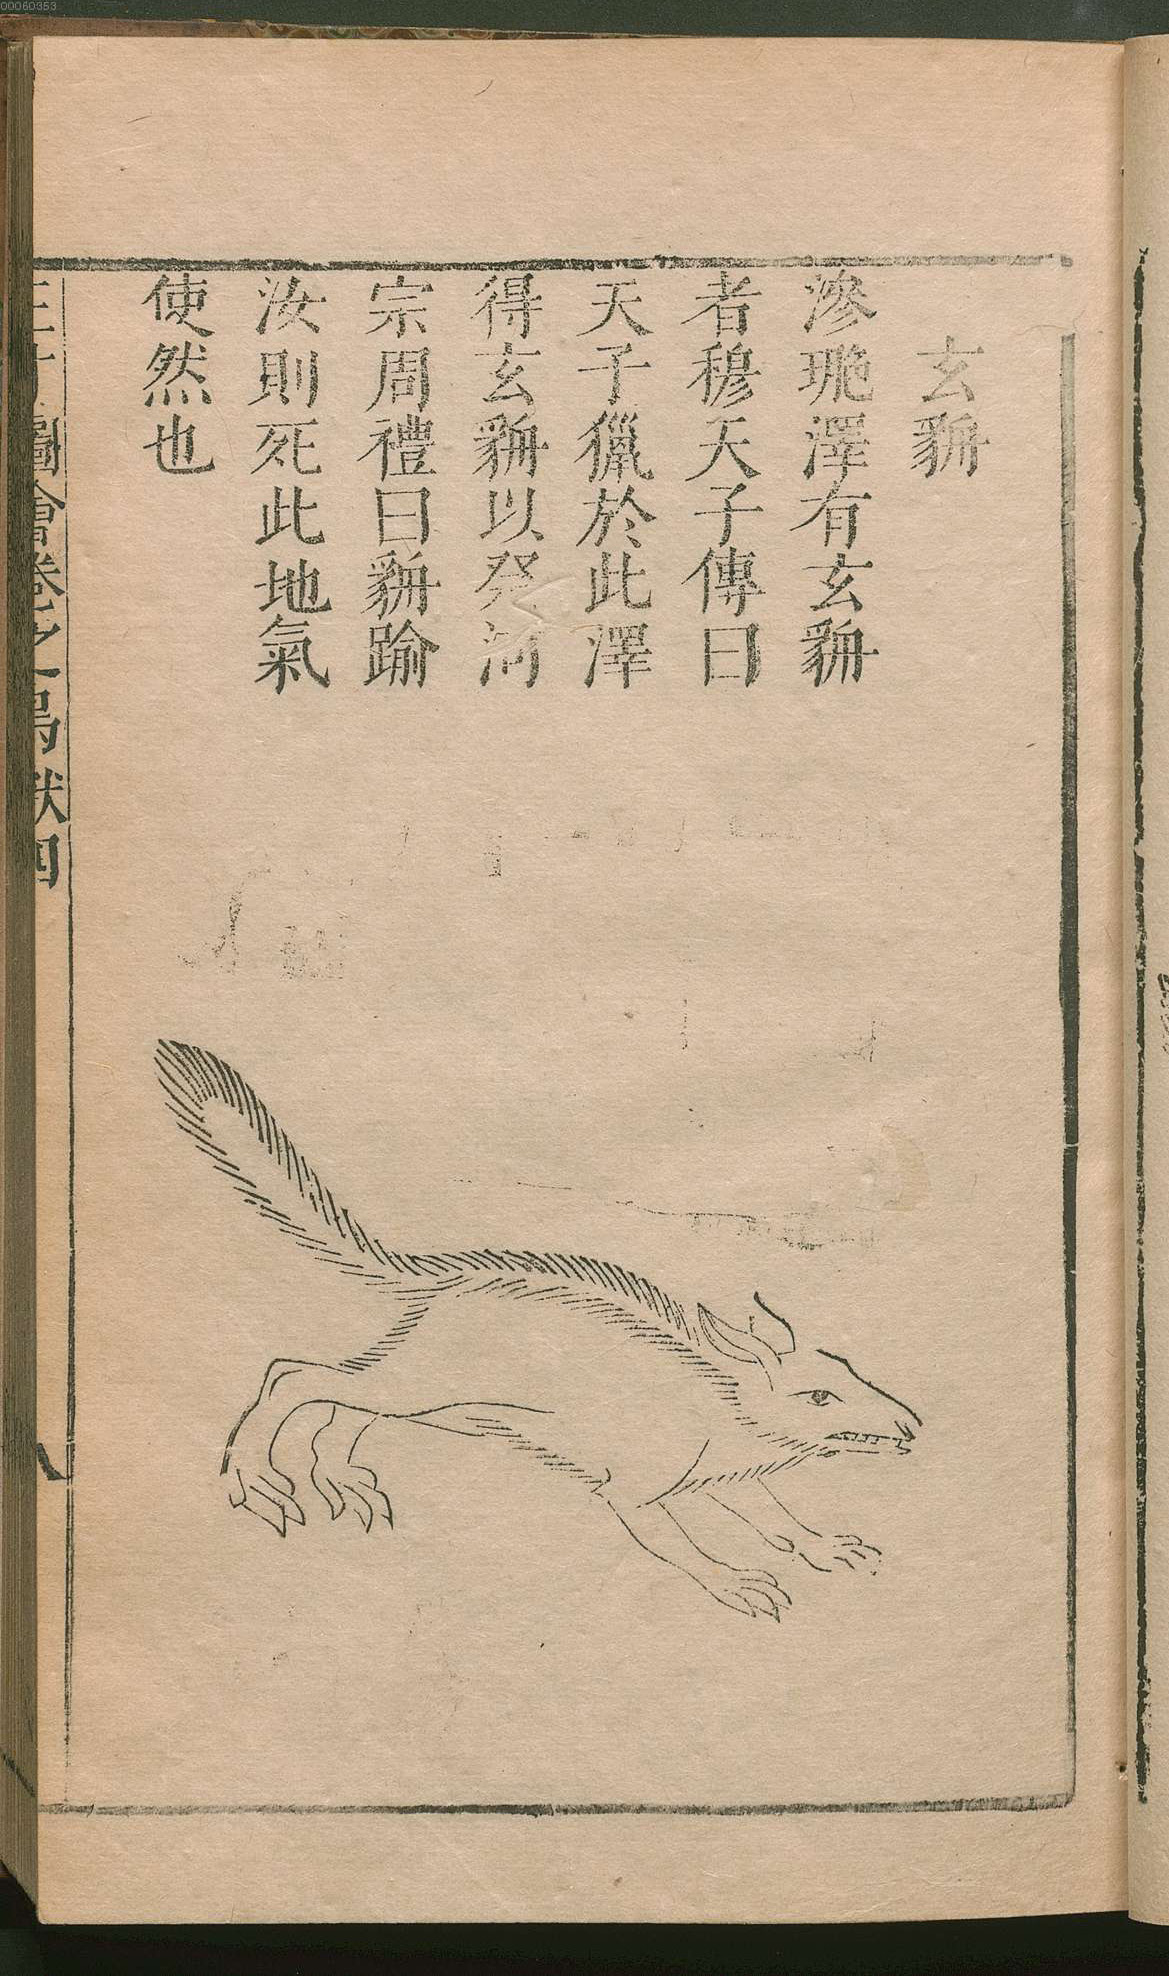 00060353
玄貈
滲澤有玄貈
者穆天子傳曰
天子獵於此澤
得玄貈以祭河
宗周禮曰貈踰
汝則死此地氣
使然也
三才圖會卷之 鳥獸四
八